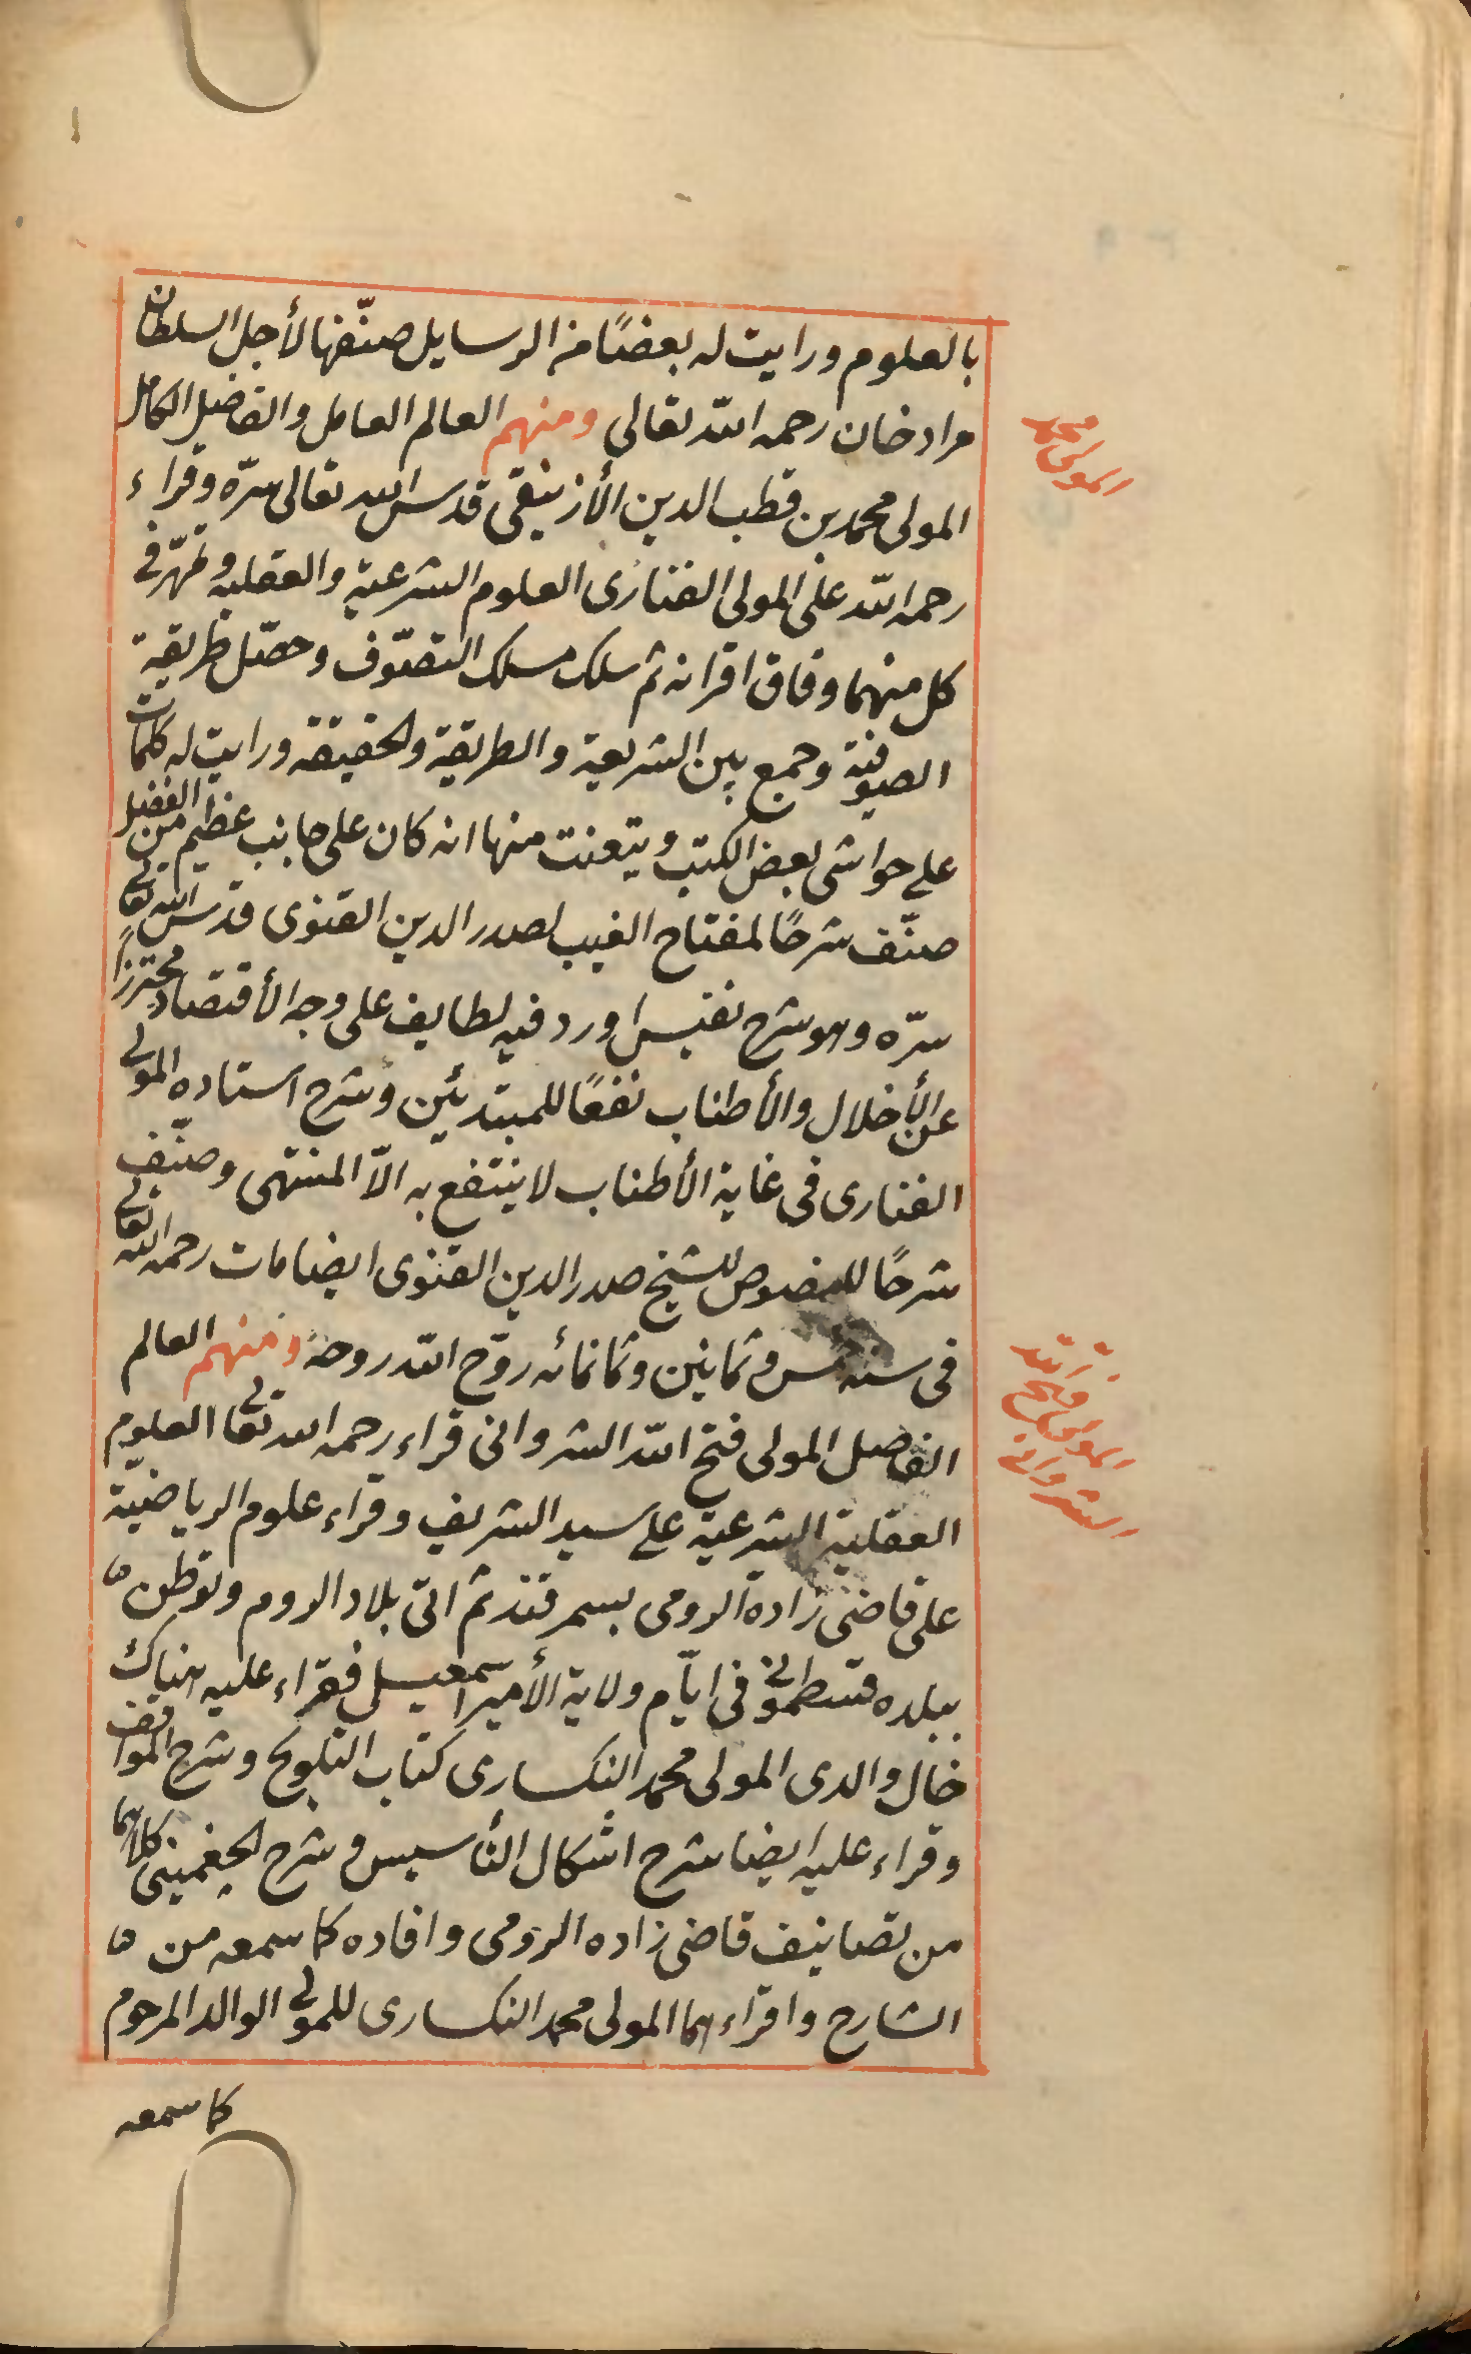 بالعلوم ورايت له بعضًا من الرسايل صنّفها لأجل السلطان
مراد خان رحمه الله تعالى ومنهم العالم العامل والفاضل الكامل
المولى محمد
المولى محمد بن قطب الدين الأزنيقى قدس الله تعالى سرّه وقراء
رحمه الله على المولى الفنارى العلوم الشرعية والعقليه وتمهّر فى
كل منهما وفاق اقرانه ثم سلك مسلك التصوّف وحصّل طريقية
الصوفية وجمع بين الشريعة والطريقية والحقيقة ورايت له كلمات
على حواشى بعض الكتب ويتعنت منها انه كان على جانب عظيم من الفضل
صنّف شرحًا لمفتاح الغيب لصدر الدين القنوى قدس الله تعالى
سرّه وهو شرح نفيس اورد فيه لطايف على وجه الأقتصاد محترزاً
عن الأخلال والأطناب نفعًا للمبتدئين وشرح استاده المولى
الفنارى فى غاية الأطناب لا ينتفع به الاّ المنتهى وصنّف
شرحًا للفصوص للشيخ صدر الدين القنوى ايضا مات رحمه الله تعالى
فى سنة خمس وثمانين وثمانمائه روّح الله روحه ومنهم العالم
المولى فتح الله
الشروانى
الفاضل المولى فتح الله الشروانى قراء رحمه الله تعالى العلوم
العقلية الشرعية على سيد الشريف وقراء علوم الرياضية
على قاضى زادة الرومى بسمرقند ثم اتى بلاد الروم وتوطن
ببلده قسطمونى فى ايّام ولاية الأمير اسمعيل فقراء عليه هناك
خال والدى المولى محمد النكسارى كتاب التلويح وشرح المواقف
وقراء عليه ايضا شرح اشكال التأسيس وشرح الجغمينى كلاهما
من تصانيف قاضى زاده الرومى وافاده كما سمعه من
الشارح واقراءهما المولى محمد النكسارى للمولى الوالد المرحوم
كما سمعه